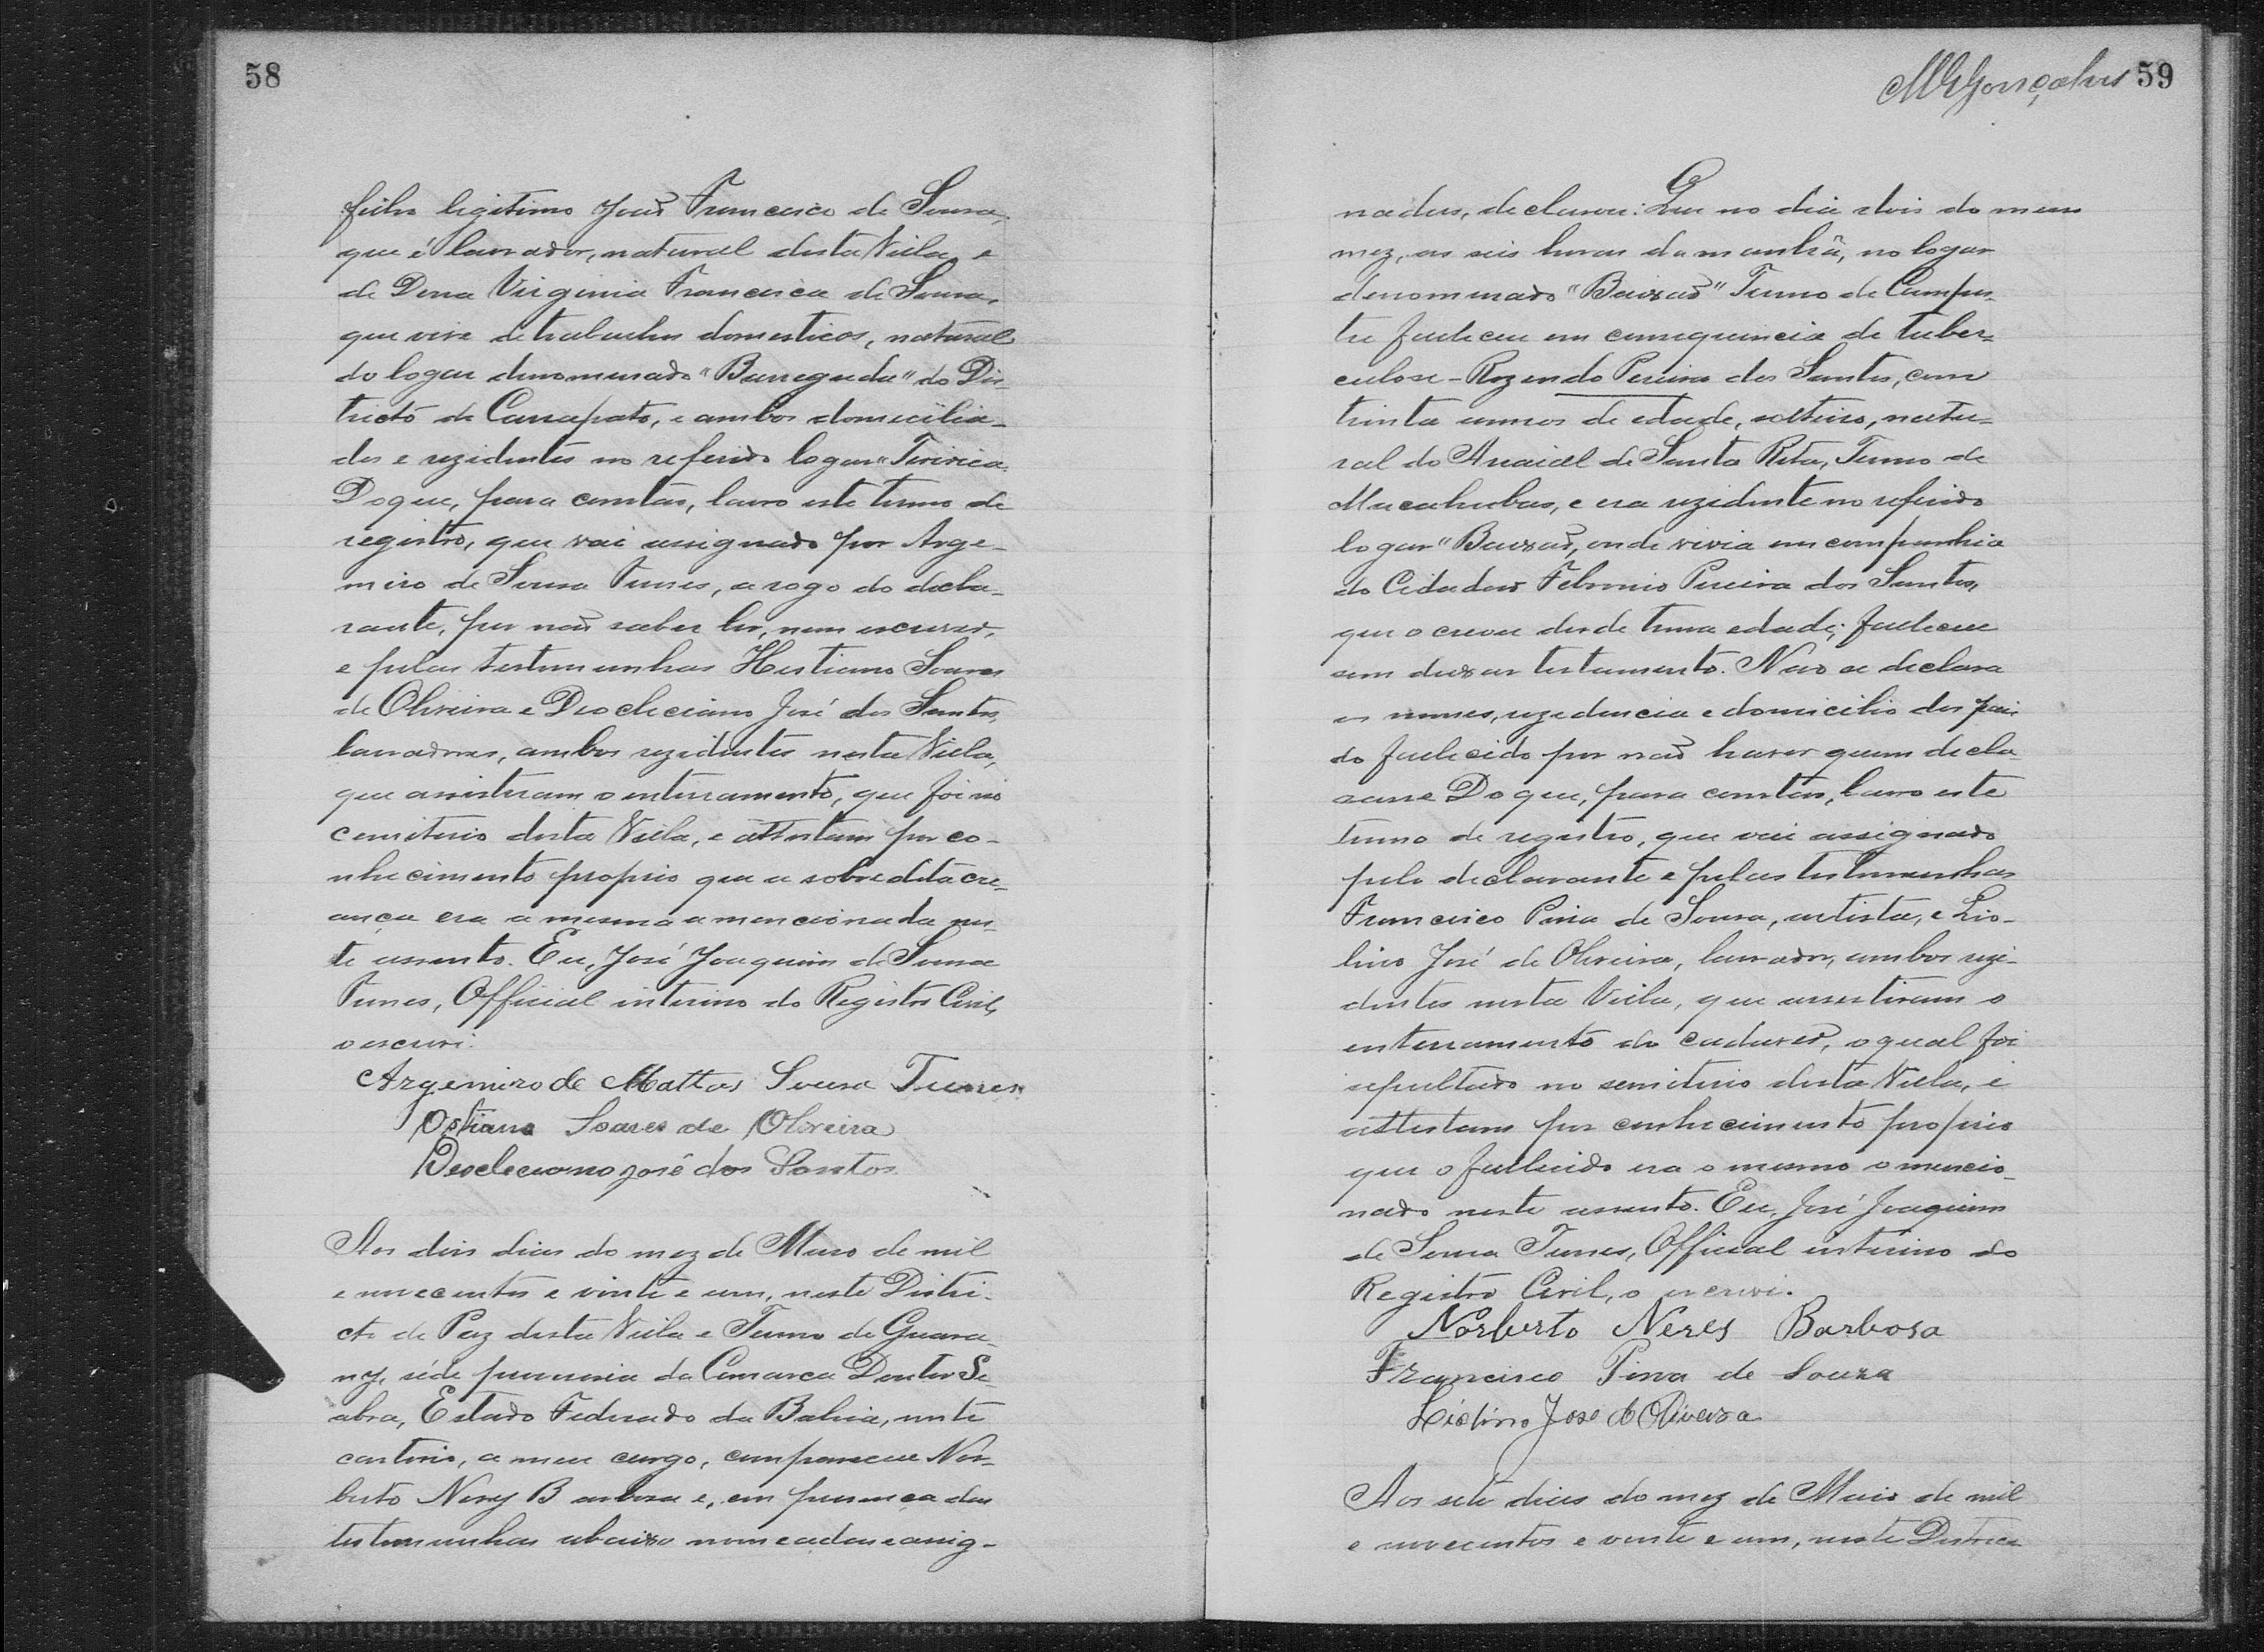 58
filho legitimo João Francisco de Sousa,
que é lavrador, natural desta Villa, e
de Dona Virginia Francisca de Sousa,
que vive de trabalhos domesticos, natural
do logar denominado "Barreguda" do Dis-
tricto de Carrapato, e ambos domicilia-
dos e rezidentes no referido logar "Tiririca.
Do que, para constar, lavro este termo de
registro, que vai assignado por Arge-
miro de Sousa Tunes, a rogo do decla-
rante, por não saber ler, nem escrever,
e pelas testemunhas Hostiano Soares
de Oliveira e Deocleciano José dos Santos,
lavradores, ambos rezidentes nesta Villa,
que assisteram o enterramento, que foi no
cemiterio desta Villa, e attestam por co-
nhecimento proprio que a sobredita cre-
ança era a mesma a mencionada nes-
te assento. Eu, José Joaquim de Sousa
Tunes, Official interino do Registro Civil,
o escrevi.
Argemiro de Mattos Sousa Tunes
Ostiano Soares de Oliveira
Deocleciano José dos Santos
Aos dois dias do mez de Maio de mil
e novecentos e vinte e um, neste Distri-
cto de Paz desta Villa e Termo de Guara-
ny, séde provisoria da Comarca Doutor Se-
abra, Estado Federado da Bahia, neste
cartorio, a meu cargo, compareceu Nor-
berto Nery Barbosa e, em presença das
testemunhas abaixo nomeadas e assig-
MGGonçalves 59
nadas, declarou: Que no dia dois do mesmo
mez, as seis horas da manhã, no logar
denominado "Baixão" Termo de Campes-
tre falleceu em consequencia de tuber-
culose - Rozendo Pereira dos Santos, com
trinta annos de edade, solteiro, natu-
ral do Arraial de Santa Rita, Termo de
Macahubas, e era rezidente no referido
logar "Baixão, onde vivia em companhia
do Cidadão Felonio Pereira dos Santos,
que o creou desde tenra edade; falleceu
sem deixar testamento. Não se declara
os nomes, rezidencia e domicilio dos pais
do fallecido por não haver quem decla-
rasse Do que, para constar, lavro este
termo de registro, que vai assignado
pelo declarante e pelas testemunhas
Francisco Pina de Sousa, artista, e Lio-
lino José de Oliveira, lavrador, ambos rezi-
dentes nesta Villa, que assistiram o
enterramento do cadaver, o qual foi
sepultado no semiterio desta Villa, e
attestam por conhecimento proprio
que o fallecido era o mesmo o mencio-
nado neste assento. Eu, José Joaquim
de Sousa Tunes, Official interino do
Registro Civil, o escrevi.
Norberto Neres Barbosa
Francisco Pina de Souza
Liolino José de Oliveira
Aos sete dias do mez de Maio de mil
e novecentos e vinte e um, neste Districo